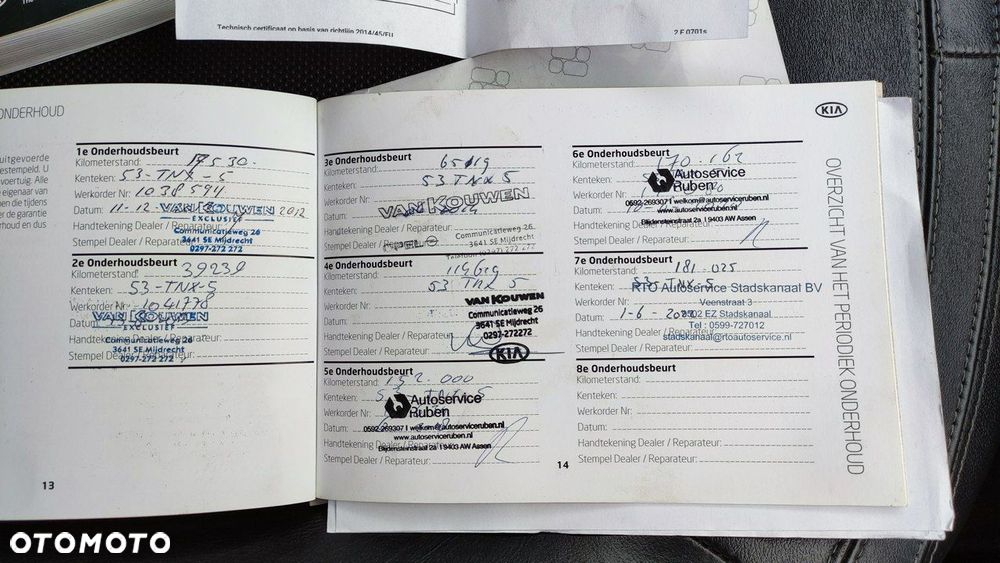 Technisch certificaat op basis van richtlijn 2014/45/EU
2 E 0701s
ONDERHOUD
uitgevoerde
estempeld. U
voertuig. Alle
e eigenaar van
en die tijdens
er de garantie
rhoud en dus
1e Onderhoudsbeurt
Kilometerstand: 17530.
Kenteken: 53-TNX-5
Werkorder Nr: 1038594
Datum: 11-12 2012
VAN KOUWEN
EXCLUSIEF
Handtekening Dealer / Reparateur:
Communicatieweg 26
Stempel Dealer / Reparateur:
3641 SE Mijdrecht
0297-272 272
2e Onderhoudsbeurt
Kilometerstand: 39239
Kenteken: 53-TNX-5
Werkorder Nr: 1041778
VAN KOUWEN
Datum:
EXCLUSIEF
Handtekening Dealer / Reparateur:
Communicatieweg 26
3641 SE Mijdrecht
Stempel Dealer / Reparateur:
0297-272 272
13
3e Onderhoudsbeurt
Kilometerstand:
Kenteken: 53 TNX 5
Werkorder Nr:
VAN KOUWEN
Datum: 2014
Handtekening Dealer / Reparateur:
Communicatieweg 26
3641 SE Mijdrecht
Stempel Dealer / Reparateur:
4e Onderhoudsbeurt
Kilometerstand:
Kenteken: 53 TNX 5
VAN KOUWEN
Werkorder Nr:
Communicatieweg 26
Datum:
3641 SE Mijdrecht
Handtekening Dealer / Reparateur:
0297-272272
Stempel Dealer / Reparateur:
KIA
5e Onderhoudsbeurt
Kilometerstand: 152.000
Kenteken:
Autoservice
Ruben
Werkorder Nr:
Datum:
0592-269307 I welkom@autoserviceruben.nl
www.autoserviceruben.nl
Handtekening Dealer / Reparateur:
Blijdensteinstraat 2a I 9403 AW Assen
Stempel Dealer / Reparateur:
14
KIA
6e Onderhoudsbeurt
Kilometerstand: 170.162
Kenteken:
Autoservice
Ruben
Werkorder Nr:
0592-269307 I welkom@autoserviceruben.nl
www.autoserviceruben.nl
Datum:
Blijdensteinstraat 2a I 9403 AW Assen
Handtekening Dealer / Reparateur:
Stempel Dealer / Reparateur:
7e Onderhoudsbeurt
Kilometerstand: 181.025
Kenteken: 53-TNX-5
RTO Autoservice Stadskanaal BV
Werkorder Nr:
Veenstraat 3
Datum: 1-6-2022
9502 EZ Stadskanaal
Tel : 0599-727012
Handtekening Dealer / Reparateur:
stadskanaal@rtoautoservice.nl
Stempel Dealer / Reparateur:
8e Onderhoudsbeurt
Kilometerstand:
Kenteken:
Werkorder Nr:
Datum:
Handtekening Dealer / Reparateur:
Stempel Dealer / Reparateur:
OVERZICHT VAN HET PERIODIEK ONDERHOUD
OTOMOTO